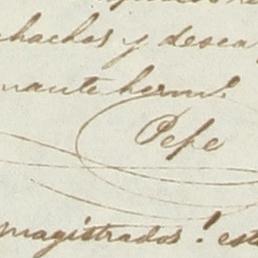 uchachos y desea
mante herm.º
Pepe
magistrados! est